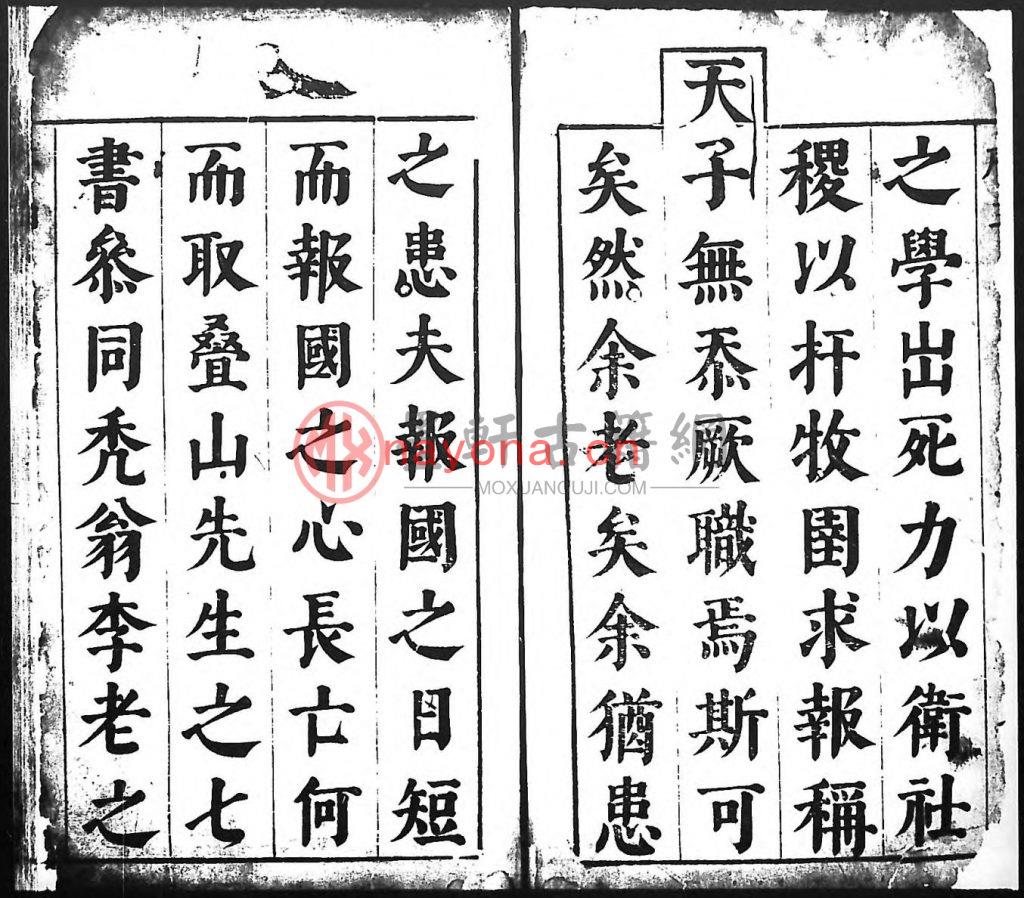 之學出死力以衛社
稷以扞牧圉求報稱
天子無忝厥職焉斯可
矣然余老矣余猶患
之患夫報國之日短
而報國之心長亡何
而取叠山先生之七
書叅同秃翁李老之
軒古籍網
nayona.cn
MOXUANGUJI.COM